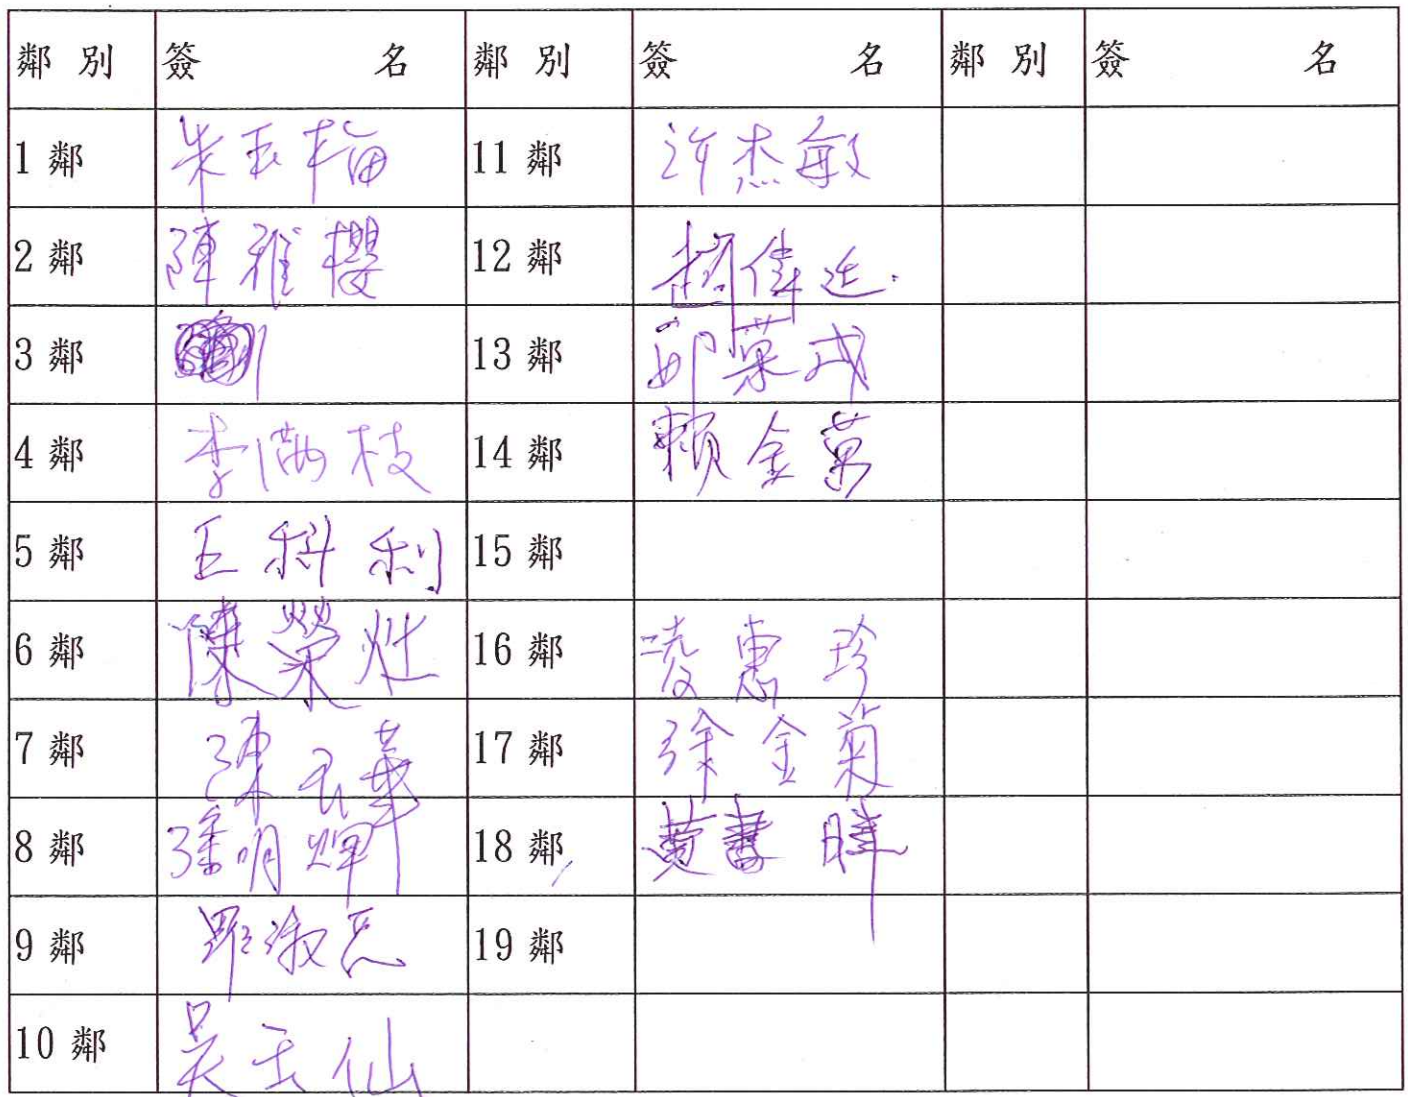 鄰別 簽名 鄰別 簽名 鄰別 簽名
1鄰 朱玉梅 11鄰 許杰敏
2鄰 陳雅櫻 12鄰 趙偉廷
3鄰 13鄰 葉成
4鄰 李滿枝 14鄰 賴金菊
5鄰 王科利 15鄰
6鄰 陳榮灶 16鄰 凌惠珍
7鄰 陳玉華 17鄰 徐金菊
8鄰 潘明輝 18鄰 黃書暐
9鄰 羅淑 19鄰
10鄰 吳玉仙